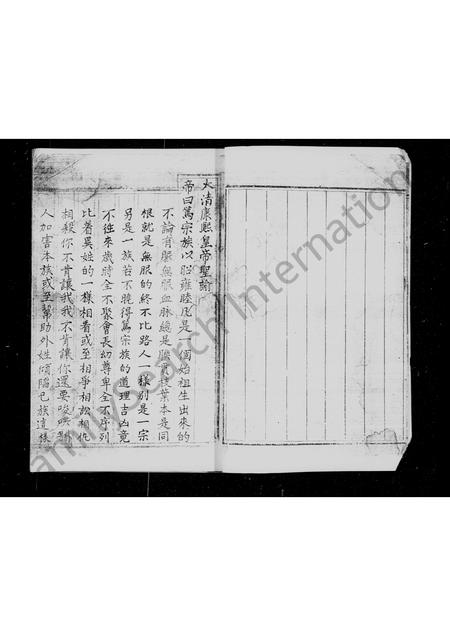 大清康熙皇帝聖諭
帝曰篤宗族以昭雍睦凡是一個始祖生出來的
不論有服無服血脉總是關枝葉本是同
根就是無服的終不比路人一樣別是一宗
另是一族若不曉得篤宗族的道理吉凶竟
不徃來歲時全不聚會長幼尊卑全不序列
比着異姓的一樣相看或至相爭相訟相
相殺你不肯讓我我不肯讓你還要唆
人加害本族或至幫助外姓傾陷已族這様
FamilySearch International